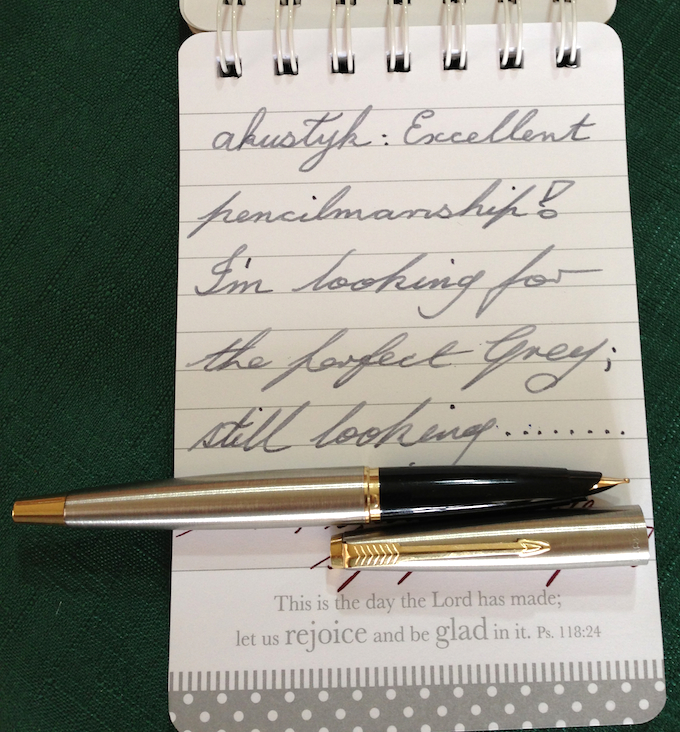 akustyk: Excellent
pencilmanship!
I'm looking for
the perfect Grey;
still looking.........
This is the day the Lord has made;
let us rejoice and be glad in it. Ps. 118:24